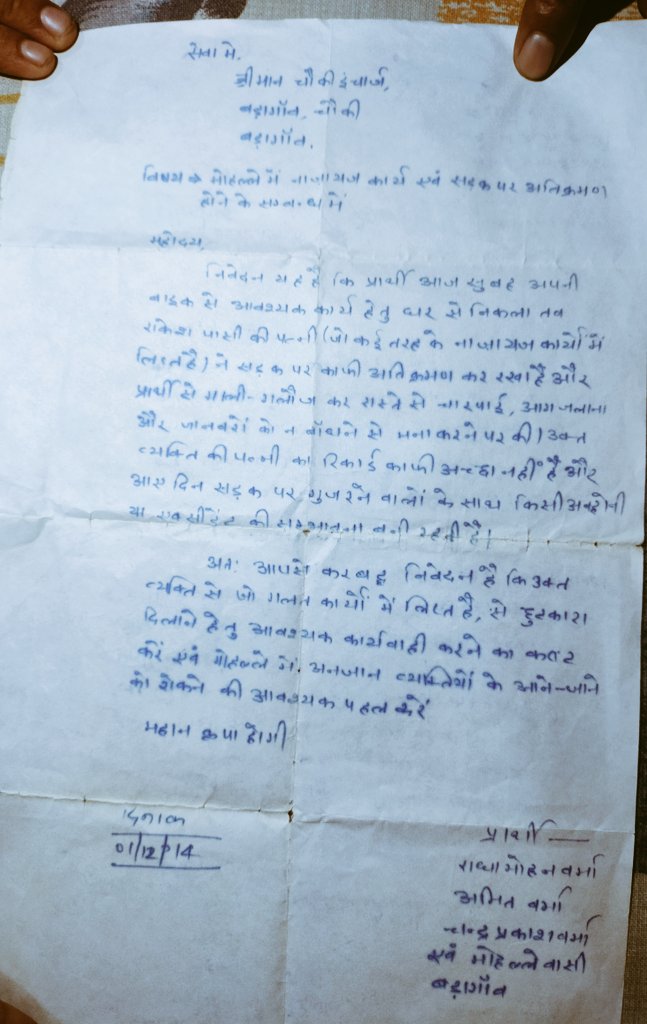 सेवा मे,
श्रीमान चौकी इंचार्ज,
बड़ागाँव, चौकी
बड़ागाँव.
विषय मोहल्ले में नाजायज कार्य एवं सड़क पर अतिक्रमण
होने के सम्बन्ध में
महोदय,
निवेदन यह है कि प्रार्थी आज सुबह अपनी
बाइक से आवश्यक कार्य हेतु घर से निकला तब
राकेश पासी की पत्नी (जो कई तरह के नाजायज कार्यो में
लिप्त है) ने सड़क पर काफी अतिक्रमण कर रखा है और
प्रार्थी से गाली-गलौज कर रास्ते से चारपाई, आग जलाना
और जानवरों को न बाँधने से मना करने पर की। उक्त
व्यक्ति की पत्नी का रिकार्ड काफी अच्छा नहीं है और
आए दिन सड़क पर गुजरने वालों के साथ किसी अनहोनी
या एक्सीडेंट की सम्भावना बनी रहती है।
अतः आपसे करबद्ध निवेदन है कि उक्त
व्यक्ति से जो गलत कार्यों में लिप्त है, से छुटकारा
दिलाने हेतु आवश्यक कार्यवाही करने का कष्ट
करें एवं मोहल्ले में अनजान व्यक्तियों के आने-जाने
को रोकने की आवश्यक पहल करें
महान कृपा होगी
दिनांक
01/12/14
प्रार्थी —
राधा मोहन वर्मा
अमित वर्मा
चन्द्र प्रकाश वर्मा
एवं मोहल्ले वासी
बड़ागाँव